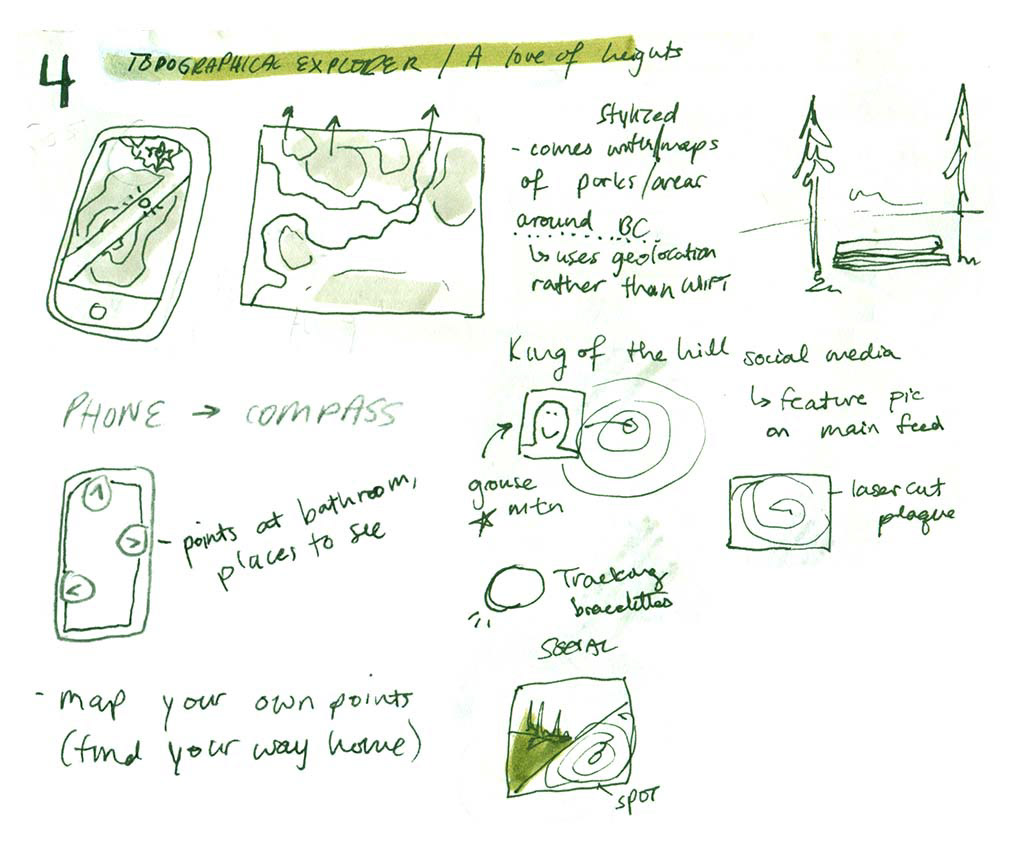 4
TOPOGRAPHICAL EXPLORER / A love of heights
stylized
- comes with/maps
of parks/areas
around BC
↳ uses geolocation
rather than WIFI
King of the hill social media
↳ feature pic
on main feed
grouse
mtn
laser cut
plaque
PHONE → COMPASS
- points at bathroom,
places to see
Tracking
bracelettes
SOCIAL
SPOT
- map your own points
(find your way home)